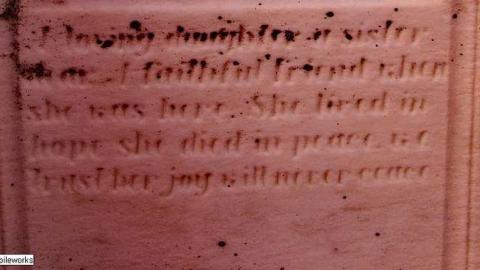 A loving daughter a sister
dear. A faithful friend when
she was here. She lived in
hope she died in peace we
trust her joy will never cease
pileworks